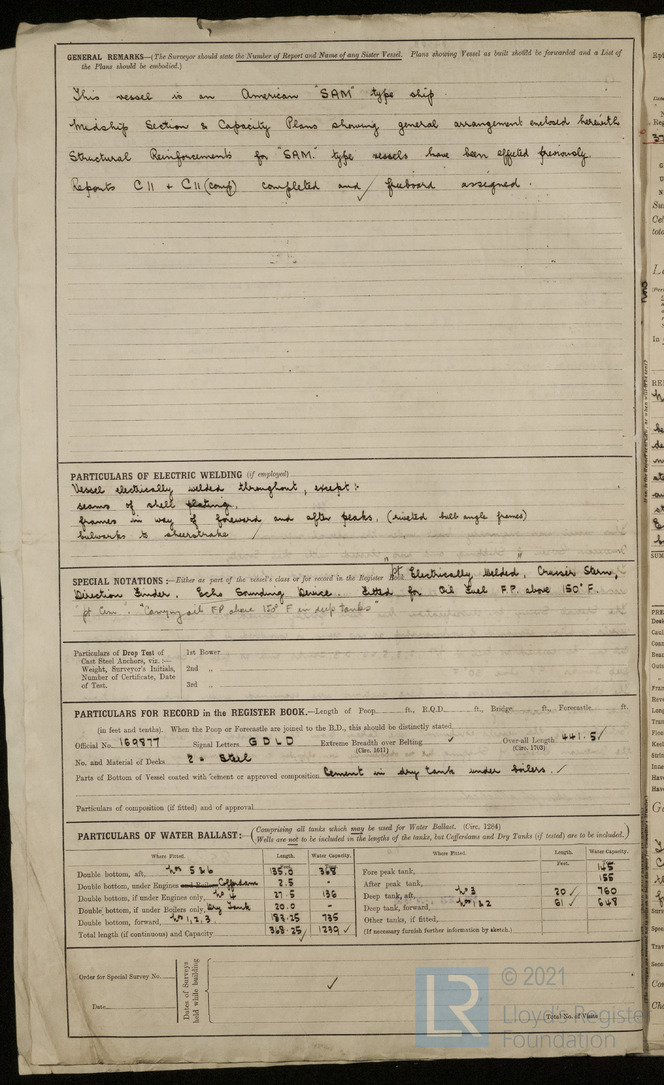 GENERAL REMARKS—(The Surveyor should state the Number of Report and Name of any Sister Vessel. Plans showing Vessel as built should be forwarded and a List of
the Plans should be embodied.)
This vessel is an American "SAM" type ship.
Midship Section & Capacity Plans showing general arrangement enclosed herewith
Structural Reinforcements for "SAM" type vessels have been effected previously.
Reports C11 + C11 (comp) completed and freeboard assigned.
PARTICULARS OF ELECTRIC WELDING (if employed)
Vessel electrically welded throughout, except:-
seams of shell plating,
frames in way of foreward and after peaks, (riveted bulb angle frames)
bulwarks to sheerstrake
SPECIAL NOTATIONS:—Either as part of the vessel's class or for record in the Register Book. "pt Electrically Welded", Cruiser Stern,
Direction Finder. Echo Sounding Device. Fitted for Oil Fuel F.P. above 150° F.
"Carrying oil F.P. above 150° F in deep tanks"
Particulars of Drop Test of
Cast Steel Anchors, viz.:—
Weight, Surveyor's Initials,
Number of Certificate, Date
of Test.
1st Bower
2nd „
3rd „
PARTICULARS FOR RECORD in the REGISTER BOOK.—Length of Poop ft., R.Q.D. ft., Bridge ft., Forecastle ft.
(in feet and tenths). When the Poop or Forecastle are joined to the B.D., this should be distinctly stated.
Official No. 169977 Signal Letters G D L D Extreme Breadth over Belting ✓ Over-all Length 441.5/
(Circ. 1611) (Circ. 1703)
No. and Material of Decks 2 Steel
Parts of Bottom of Vessel coated with cement or approved composition Cement in dry tank under boilers. ✓
Particulars of composition (if fitted) and of approval
PARTICULARS OF WATER BALLAST:—(Comprising all tanks which may be used for Water Ballast. (Circ. 1284)
Wells are not to be included in the lengths of the tanks, but Cofferdams and Dry Tanks (if tested) are to be included.)
Where Fitted. Length. Water Capacity. Where Fitted. Length. Water Capacity.
Feet.
Double bottom, aft, Nos 5 & 6 135.0 368 Fore peak tank, 145
Double bottom, under Engines and Boilers Cofferdam 2.5 - After peak tank, 155
Double bottom, if under Engines only, No 4 27.5 136 Deep tank, aft, No 3 20 ✓ 760
Double bottom, if under Boilers only, Dry Tank 20.0 - Deep tank, forward, Nos 1 & 2 61 ✓ 648
Double bottom, forward, Nos 1, 2, 3. 183.25 735 Other tanks, if fitted,
Total length (if continuous) and Capacity 368.25/ 1239 ✓ (If necessary furnish further information by sketch.)
Order for Special Survey No.
Date
Dates of Surveys
held while building
✓
Total No. of Visits
LR
© 2021
Lloyd's Register
Foundation